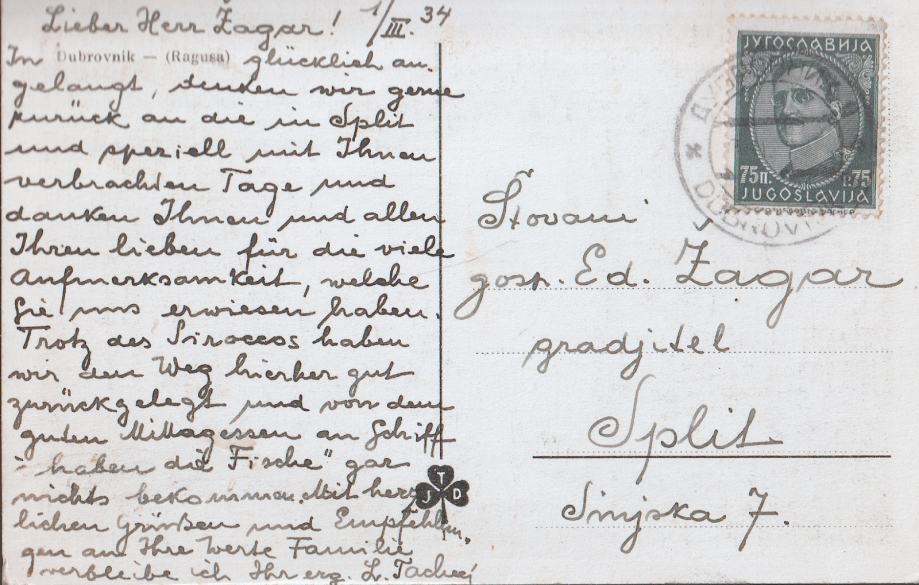 Lieber Herr Žagar! 1/III. 34
Dubrovnik — (Ragusa)
In glücklich an-
gelangt, denken wir gerne
zurück an die in Split
und speziell mit Ihnen
verbrachten Tage und
danken Ihnen und allen
Ihren lieben für die viele
Aufmerksamkeit, welche
Sie uns erwiesen haben.
Trotz des Siroccos haben
wir den Weg hierher gut
zurückgelegt und von dem
guten Mittagessen am Schiff
haben die Fische" gar
nichts bekommen. Mit herz-
lichen Grüßen und Empfehlun-
gen an Ihre werte Familie
verbleibe ich Ihr erg. L.
J T D
ЈУГОСЛАВИЈА
75п. P.75
JUGOSLAVIJA
DUBROVNIK
Štovani
gosp. Ed. Žagar
gradjitel
Split
Sinjska 7.